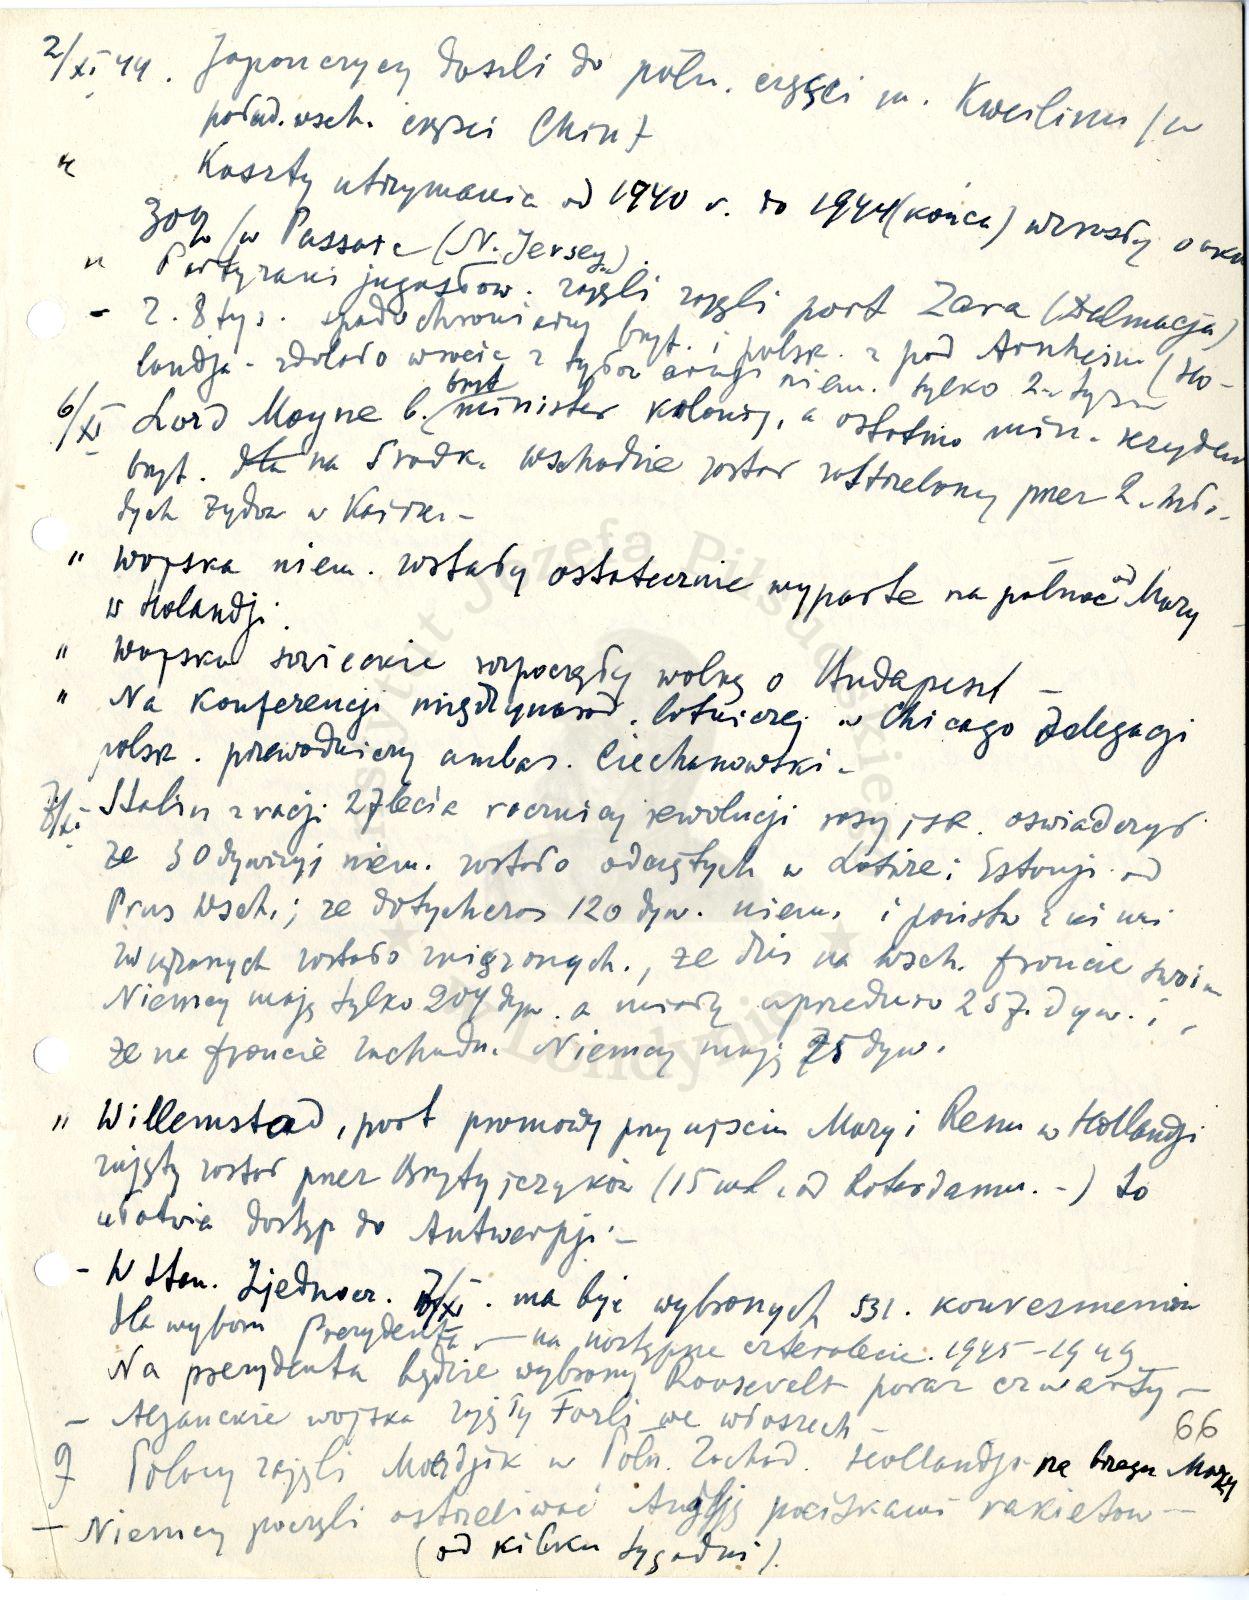 2/XI 44. Japończycy doszli do półn. części m. Kweilinu /w
połud. wsch. części Chin/
" Koszty utrzymania od 1940 r. do 1944 (końca) wzrosły o
30% /w Passaic (N. Jersey).
" Partyzanci jugosłow. zajęli zajęli port Zara (Dalmacja)
- Z 8 tys. spadochroniarzy bryt. i polsk. z pod Arnheim (Ho-
landja - zdołało wrócić z tyłów armji niem. tylko 2-tys.
6/XI Lord Moyne b. bryt. minister kolonij, a ostatnio min. rezydent
bryt. dla na Środk. Wschodzie został zastrzelony przez 2-mło-
dych żydów w Kairze. -
" Wojska niem. zostały ostatecznie wyparte na północ od Mozy
w Holandji.
" Wojska sowieckie rozpoczęły walkę o Budapeszt -
" Na Konferencji międzynarod. lotniczej w Chicago delegacji
polsk. przewodniczy ambas. Ciechanowski -
7/XI - Stalin z racji 27lecia rocznicy rewolucji rosyjsk. oświadczył
że 30 dywizyj niem. zostało odciętych w Łotwie i Estonji od
Prus Wsch.; że dotychczas 120 dyw. niem. i państw z nimi
związanych zostało zniszczonych., że dziś na wsch. froncie swoim
Niemcy mają tylko 204 dyw. a miały uprzednio 257. dyw. i,
że na froncie zachodn. Niemcy mają 75 dyw.
" Willemstad, port promowy przy ujściu Mozy i Renu w Hollandji
zajęty został przez Brytyjczyków (15 mil. od Roterdamu. -) to
ułatwia dostęp do Antwerpji -
- W Stan. Zjednocz. 7/XI. ma być wybranych 531. konwesmenów
dla wyboru Prezydenta - na następne czterolecie. 1945 - 1949
Na prezydenta będzie wybrany Roosevelt poraz czwarty -
- Aljanckie wojska zajęły Forli we włoszech -
66
9 Polacy zajęli Moerdjik w Półn. Zachod. Hollandji na brzegu Mozy
- Niemcy poczęli ostrzeliwać Anglję pociskami rakietow -
(od kilku tygodni).
Instytut Józefa Piłsudskiego
w Londynie